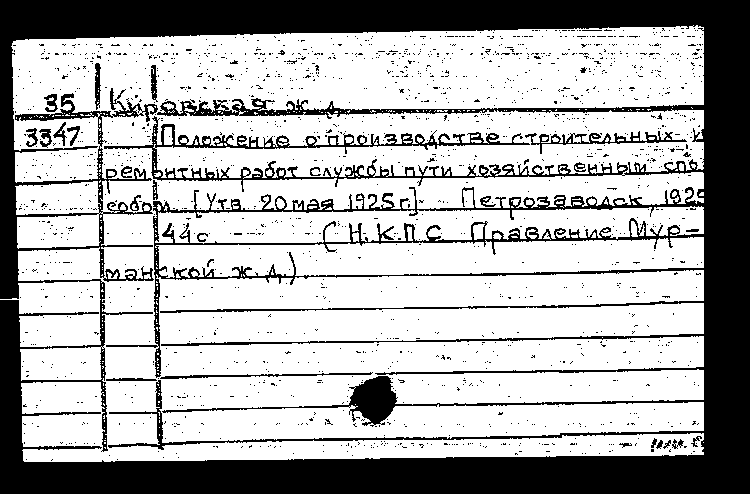 35 Кировская ж. д.
3347 Положение о производстве строительных и
ремонтных работ службы пути хозяйственным спо
собом [Утв. 20 мая 1925 г.] - Петрозаводск, 1925
44 с. -- (Н.К.П.С Правление Мур-
манской ж. д.).